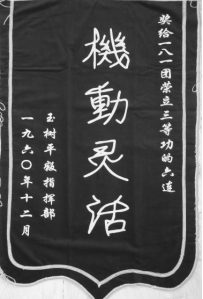 奖给一八一团荣立三等功的六连
機動灵活
玉树平叛指挥部
一九六〇年十二月